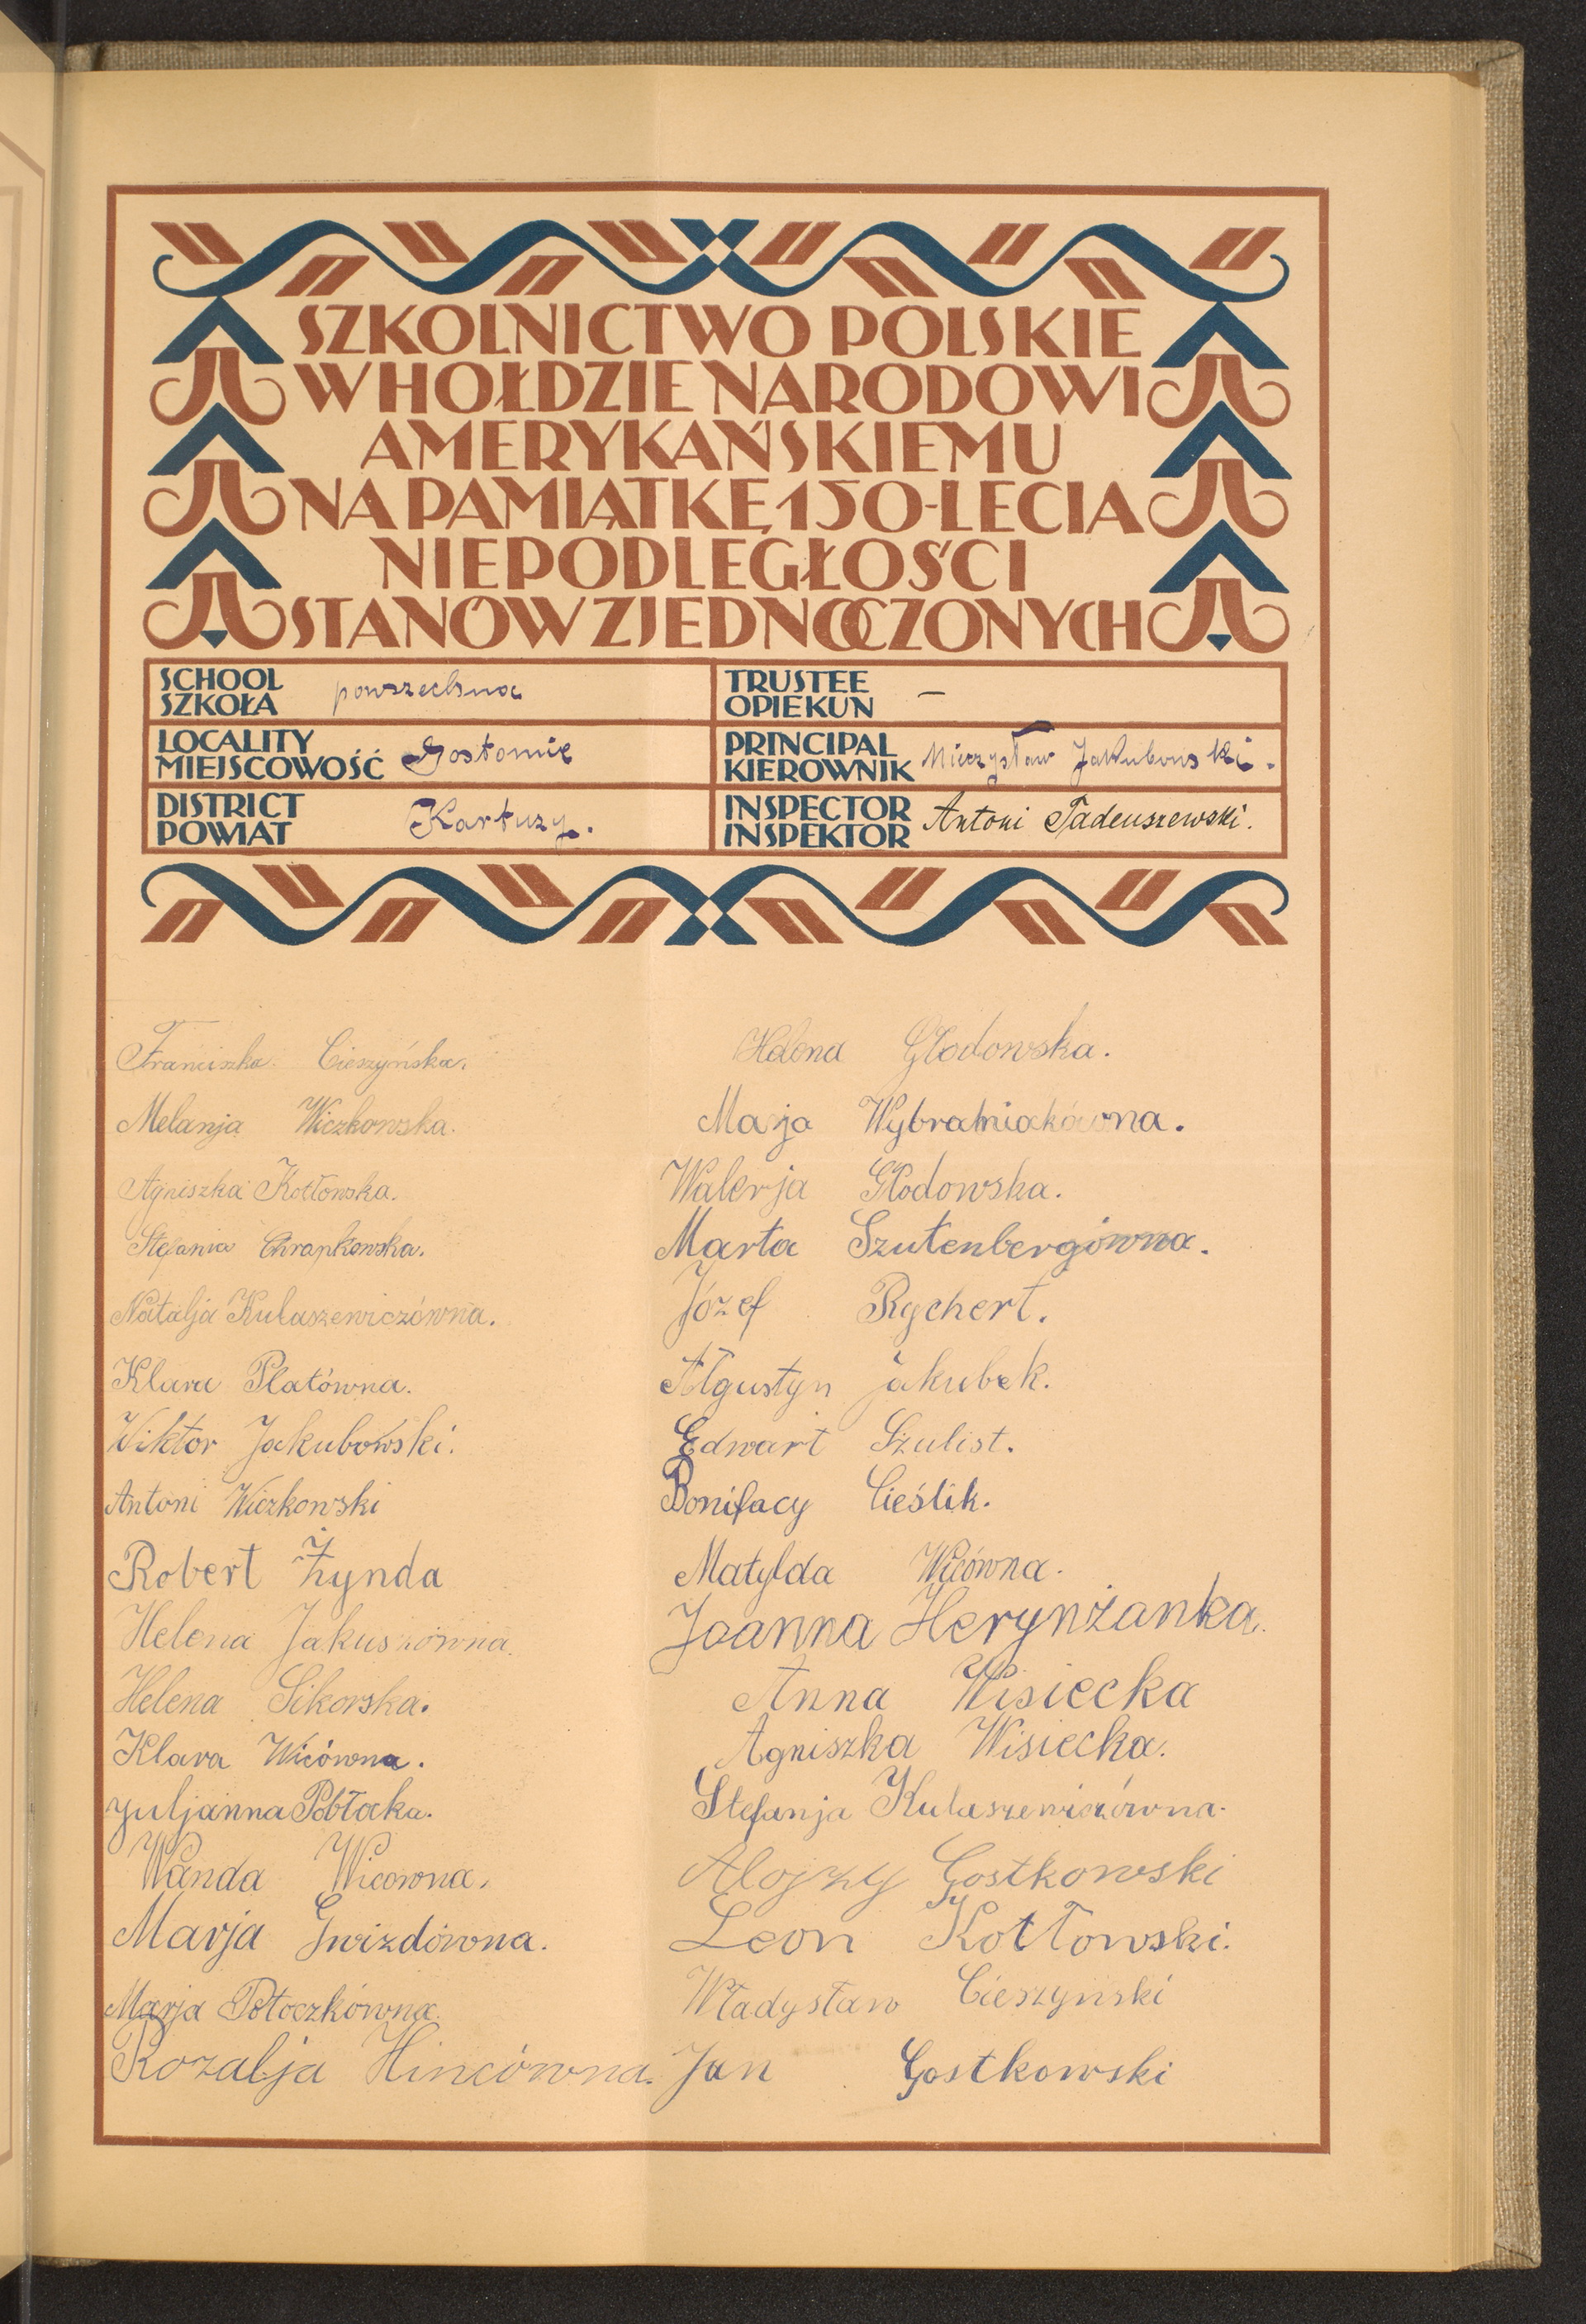 SZKOLNICTWO POLSKIE
W HOŁDZIE NARODOWI
AMERYKAŃSKIEMU
NA PAMIĄTKĘ 150-LECIA
NIEPODLEGŁOŚCI
STANÓW ZJEDNOCZONYCH
SCHOOL
SZKOŁA
powszechna
TRUSTEE
OPIEKUN
—
LOCALITY
MIEJSCOWOŚĆ
Gostomie
PRINCIPAL
KIEROWNIK
Mieczysław Jakubowski.
DISTRICT
POWIAT
Kartuzy.
INSPECTOR
INSPEKTOR
Antoni Tadeuszewski.
Franciszka Cieszyńska.
Melanja Wiczkowska.
Agniszka Kotłowska.
Stefania Chrapkowska.
Natalja Kulaszewiczówna.
Klara Platówna.
Wiktor Jakubowski.
Antoni Wiczkowski
Robert Żynda
Helena Jakuszówna.
Helena Sikorska.
Klara Wicówna.
Juljanna Pobłocka.
Wanda Wicowna.
Marja Gwizdówna.
Marja Potoczkówna.
Rozalja Hincówna.
Helena Głodowska.
Marja Wybraniakówna.
Walerja Głodowska.
Marta Szutenbergówna.
Józef Rychert.
Ałgustyn Jakubek.
Edwart Szulist.
Bonifacy Cieślik.
Matylda Wicówna.
Joanna Herynżanka.
Anna Wisiecka
Agniszka Wisiecka.
Stefanja Kulaszewiczówna.
Alojzy Gostkowski
Leon Kotłowski.
Władysław Cieszyński
Jan Gostkowski